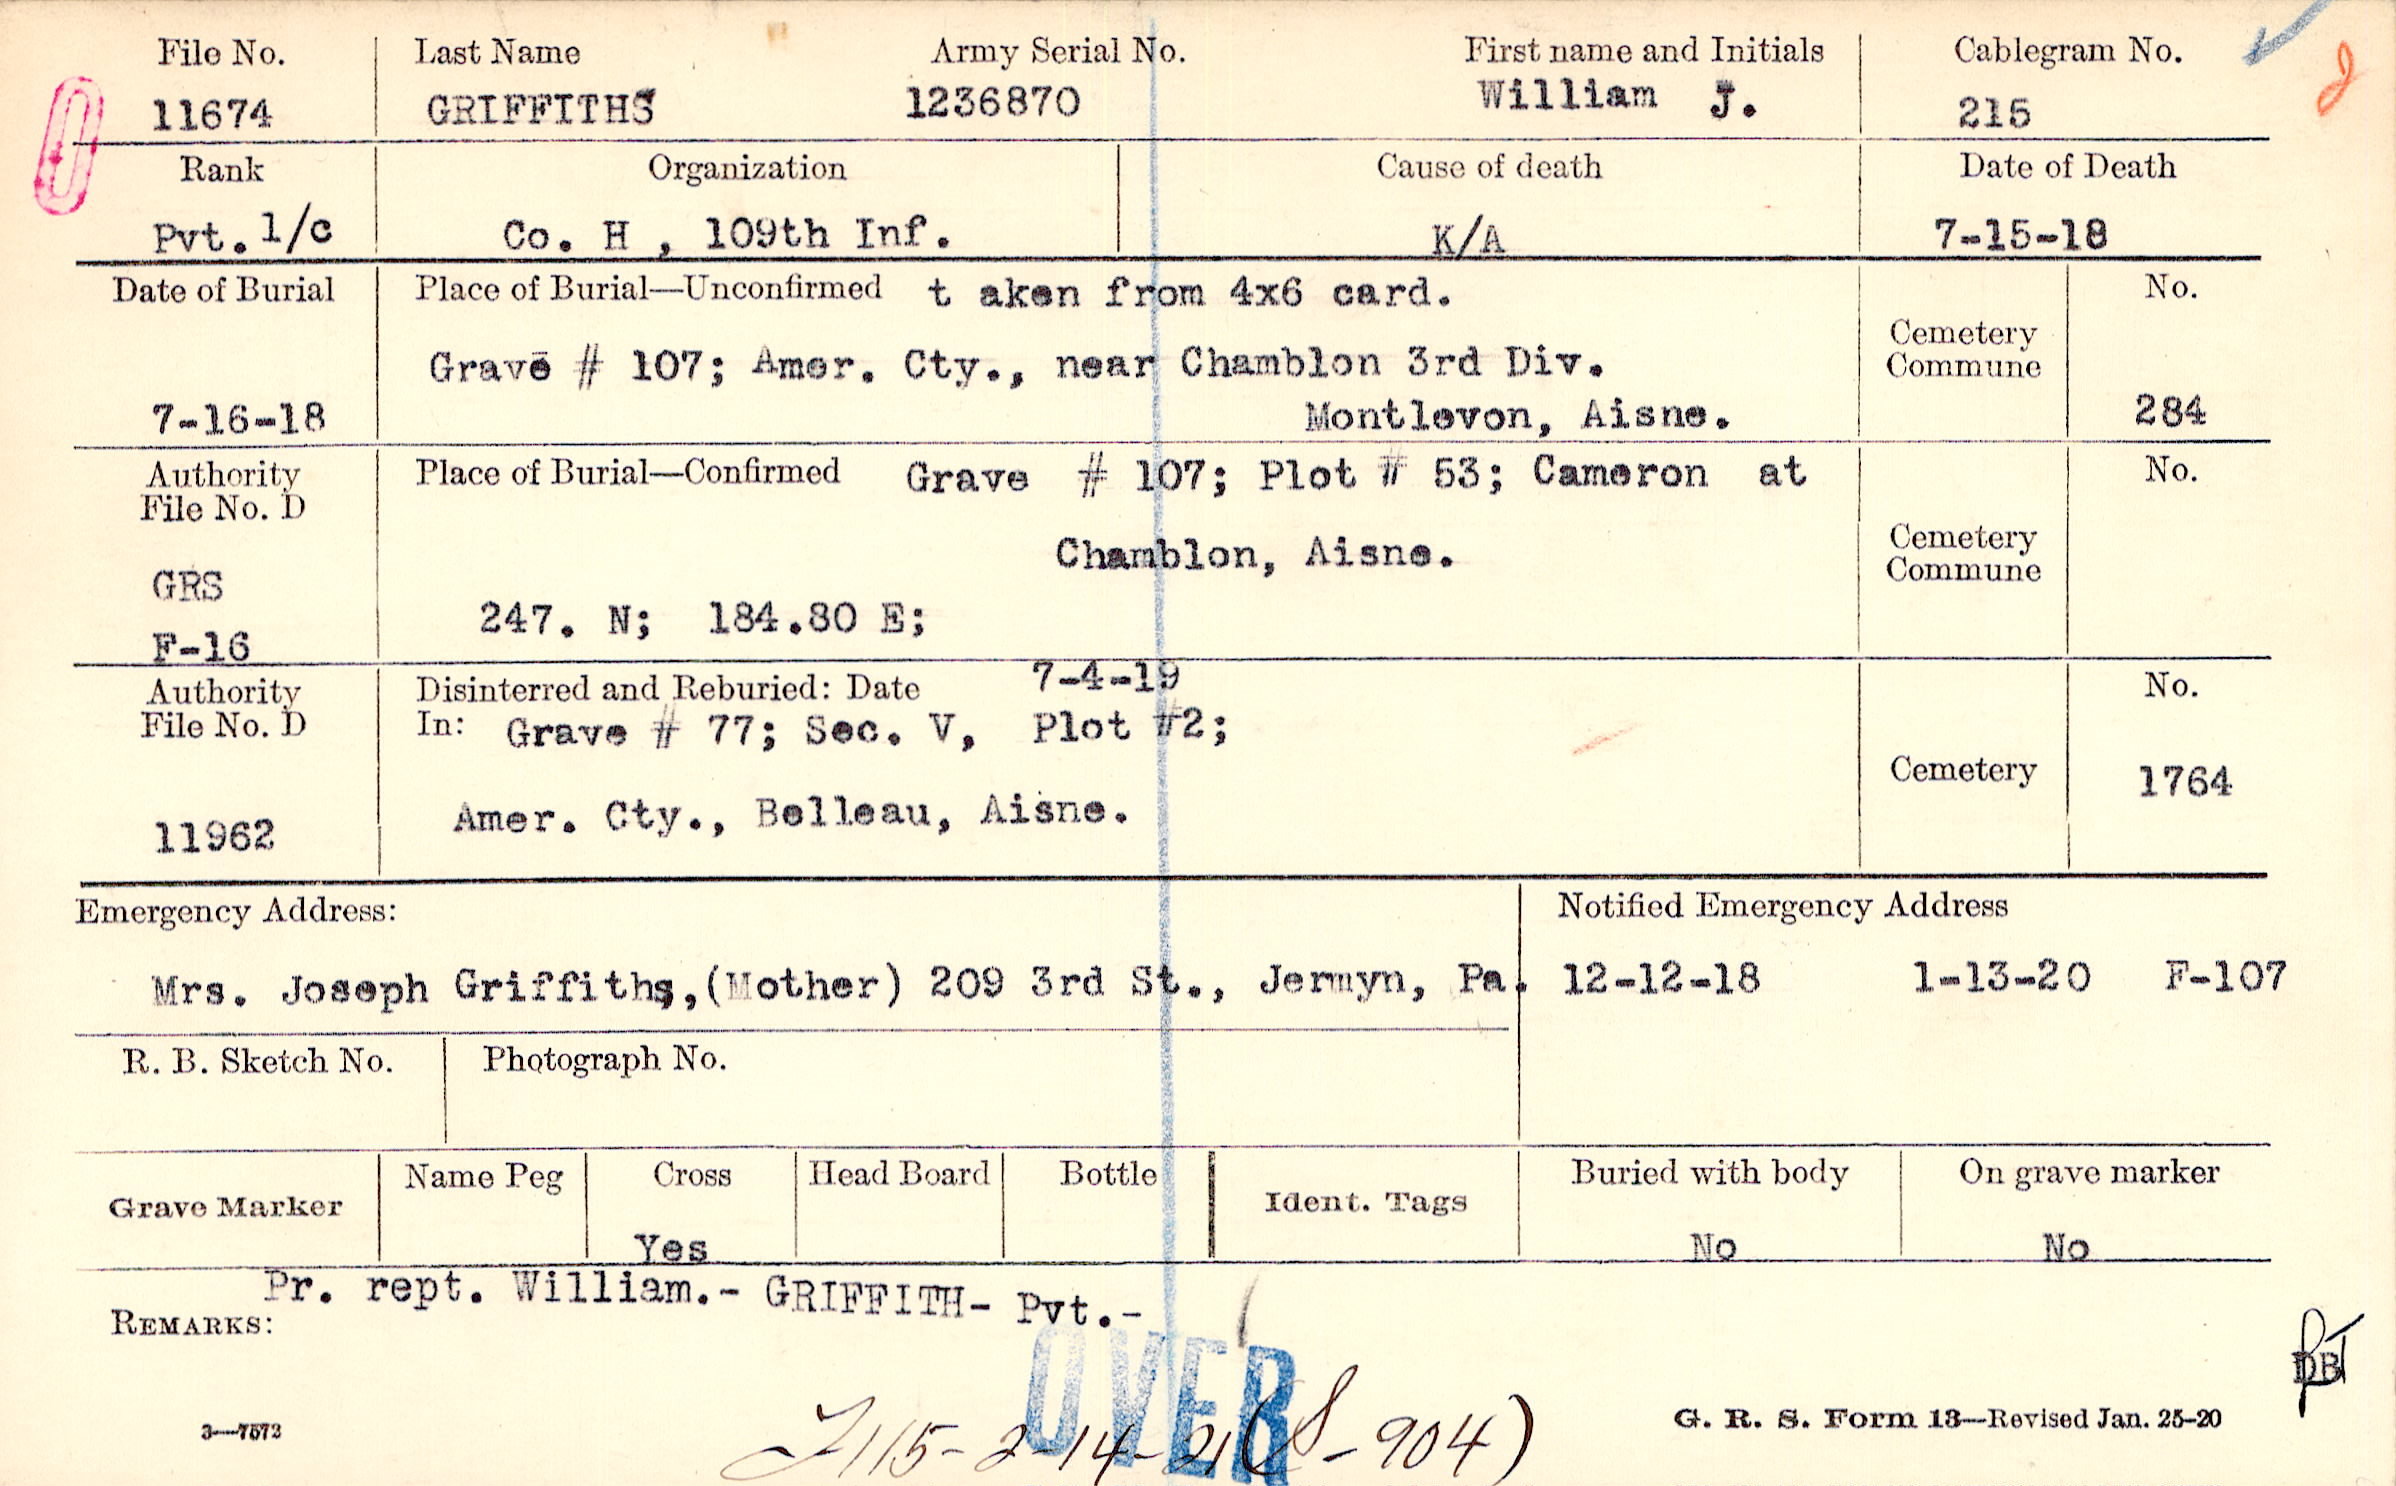 File No. Last Name Army Serial No. First name and Initials Cablegram No.
11674 GRIFFITHS 1236870 William J. 215
Rank Organization Cause of death Date of Death
Pvt. 1/c Co. H , 109th Inf. K/A 7-15-18
Date of Burial Place of Burial—Unconfirmed t aken from 4x6 card. No.
Cemetery
Commune
Grave # 107; Amer. Cty., near Chamblon 3rd Div.
7-16-18 Montlevon, Aisne. 284
Authority Place of Burial—Confirmed Grave # 107; Plot # 53; Cameron at No.
File No. D
Chamblon, Aisne. Cemetery
Commune
GRS
247. N; 184.80 E;
F-16
Authority Disinterred and Reburied: Date 7-4-19 No.
File No. D In: Grave # 77; Sec. V, Plot #2;
Cemetery 1764
11962 Amer. Cty., Belleau, Aisne.
Emergency Address: Notified Emergency Address
Mrs. Joseph Griffiths,(Mother) 209 3rd St., Jermyn, Pa. 12-12-18 1-13-20 F-107
R. B. Sketch No. Photograph No.
Name Peg Cross Head Board Bottle Buried with body On grave marker
Grave Marker Ident. Tags
Yes No No
Pr. rept. William.- GRIFFITH- Pvt.-
REMARKS:
OVER
DB
115-2-14-21 (S-904)
3—7572 G. R. S. Form 13—Revised Jan. 25-20